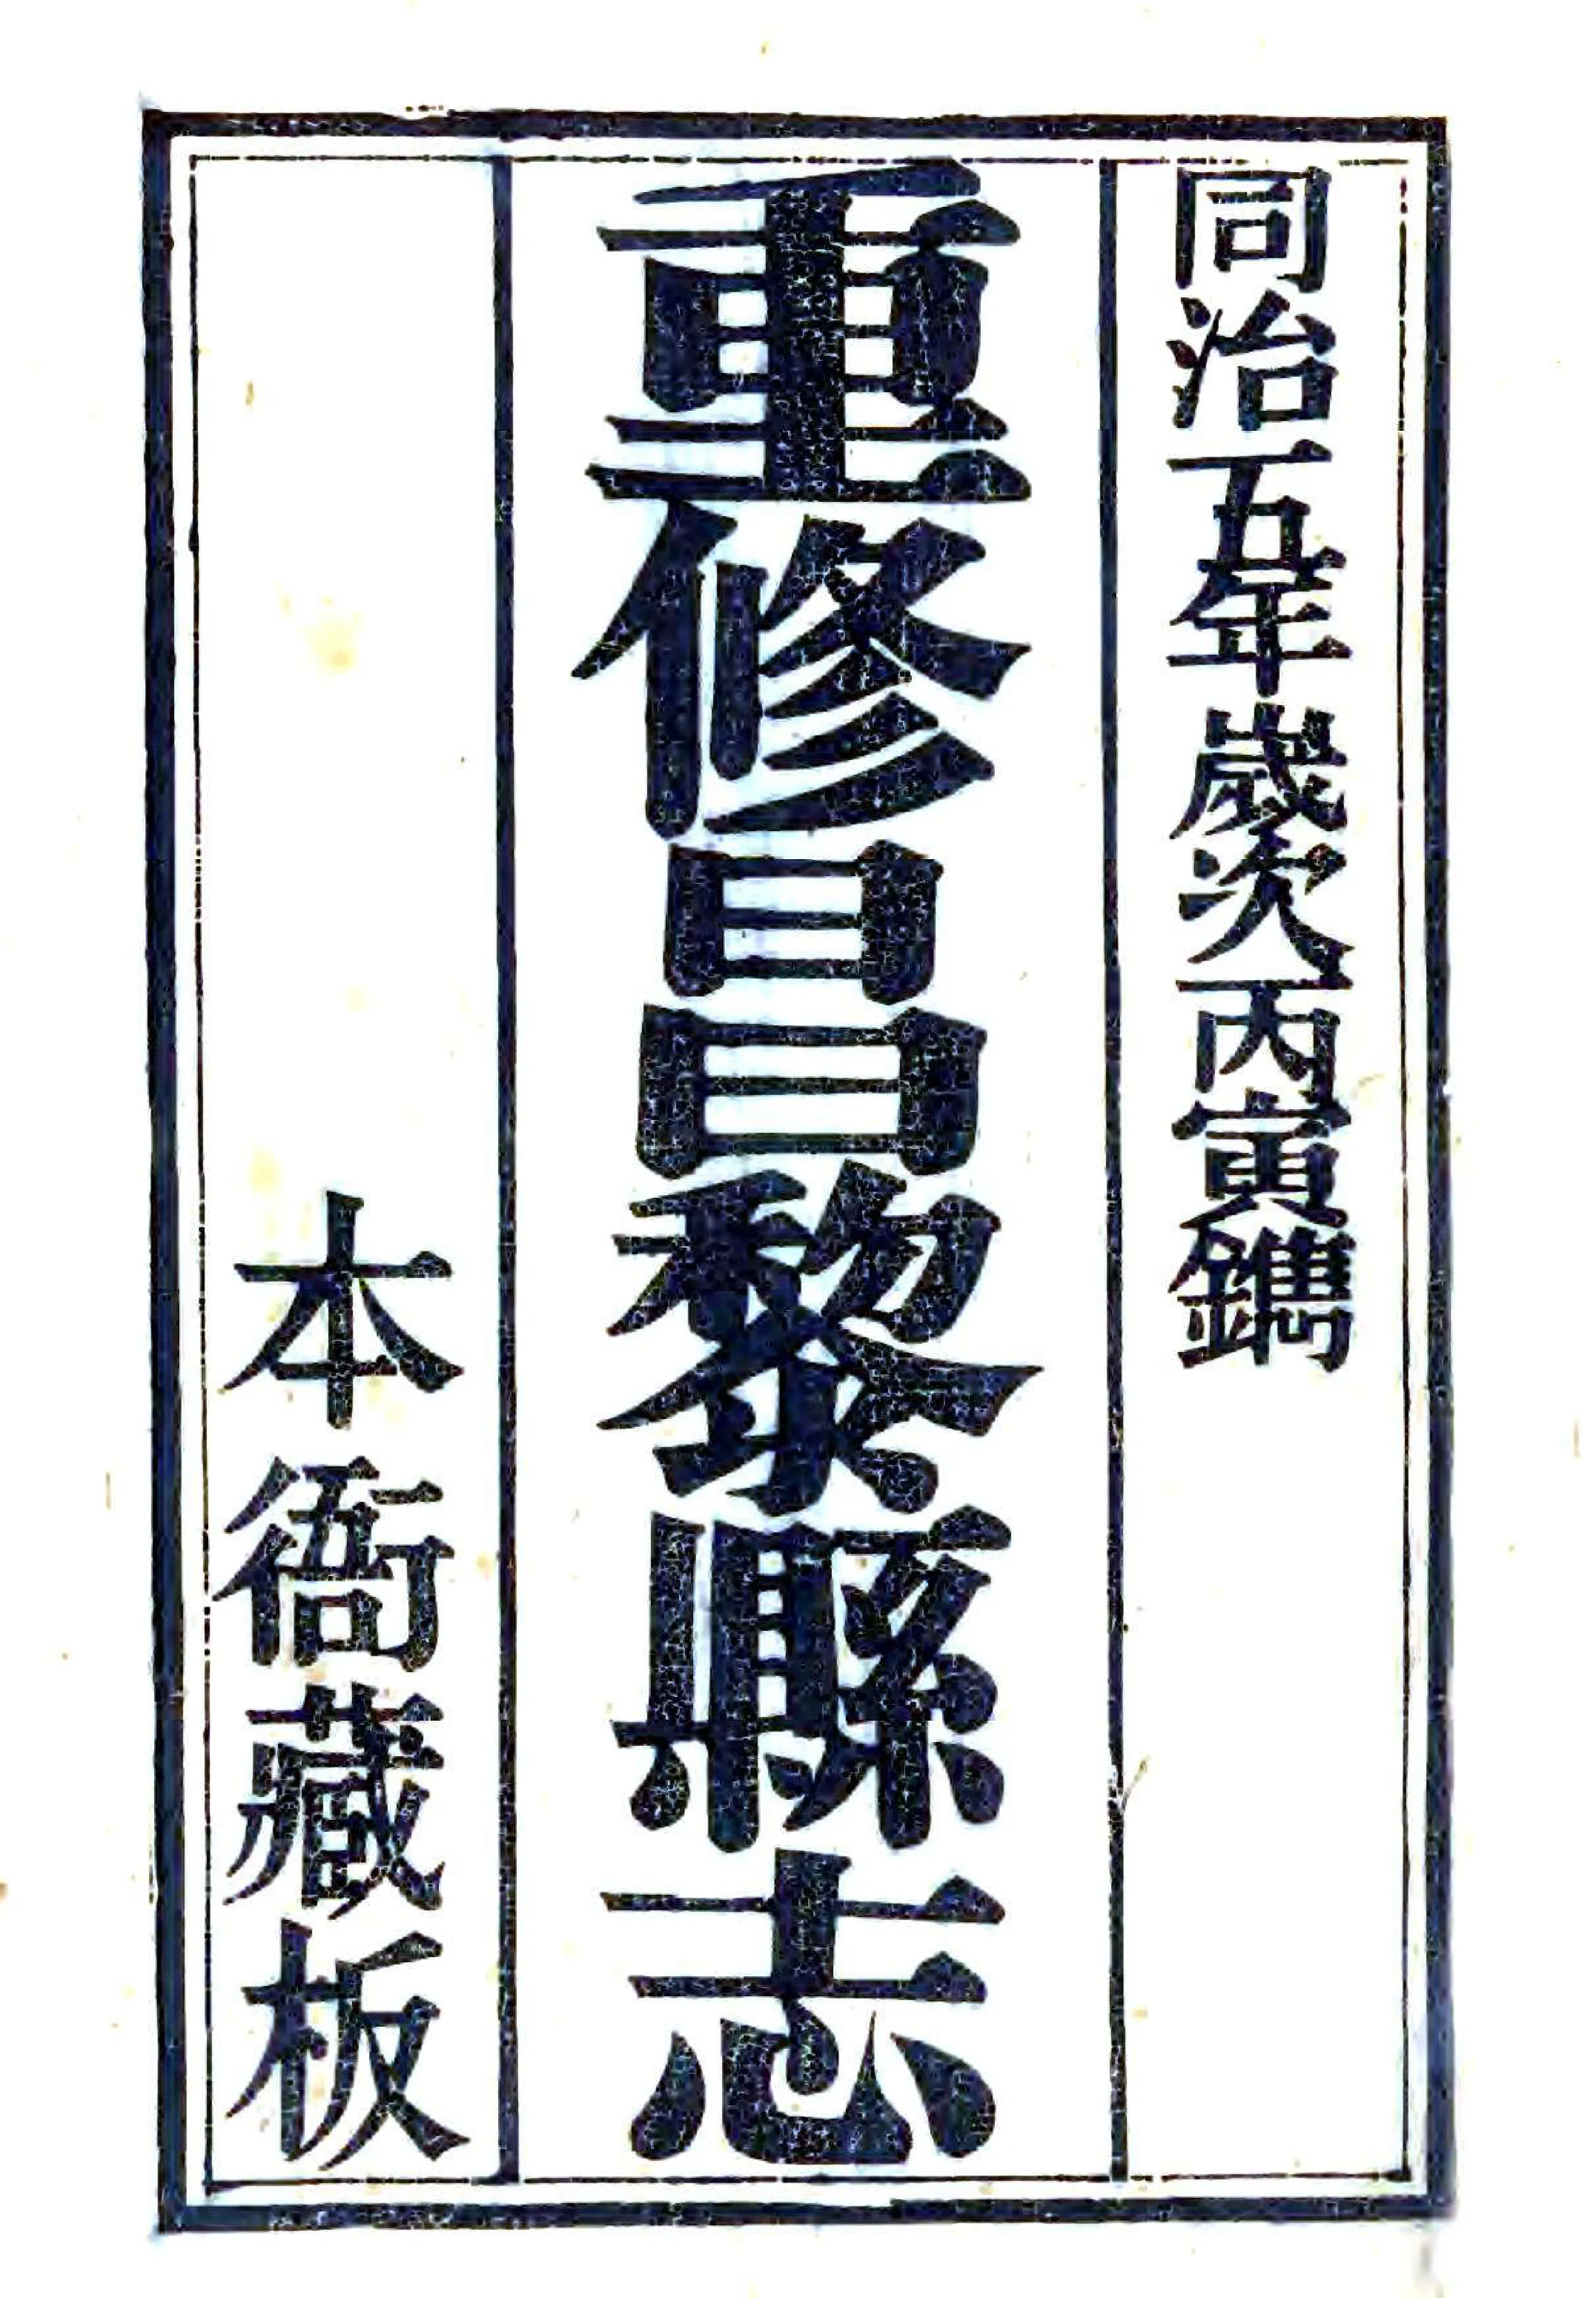 同治五年歲次丙寅鐫
重修昌黎縣志
本衙藏板